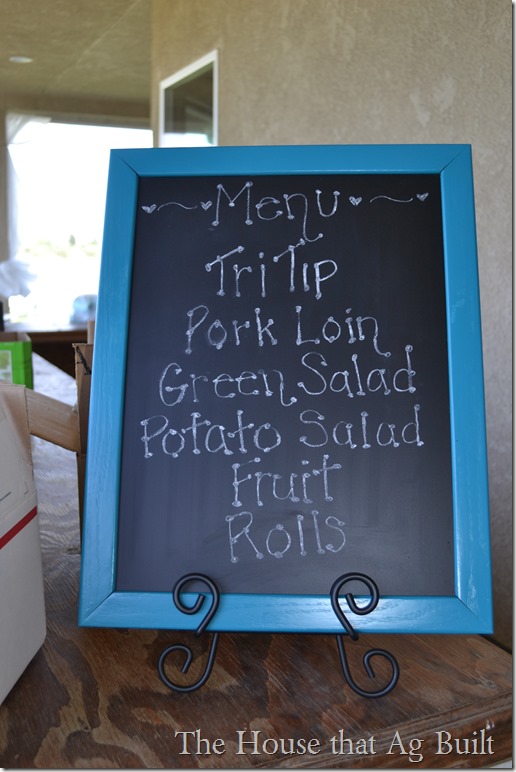 Menu
Tri Tip
Pork Loin
Green Salad
Potato Salad
Fruit
Rolls
The House that Ag Built